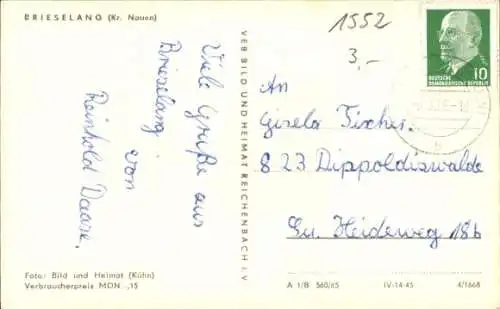 BRIESELANG (Kr. Nauen)
1552
3,-
10
DEUTSCHE
DEMOKRATISCHE REPUBLIK
Viele Grüße aus
Brieselang
von
Reinhold Daase.
VEB BILD UND HEIMAT REICHENBACH I. V.
An
Gisela Fischer.
823 Dippoldiswalde
Heideweg 18b
Foto: Bild und Heimat (Kühn)
Verbraucherpreis MDN -,15
A 1/B 560/65 IV-14-45 4/1668